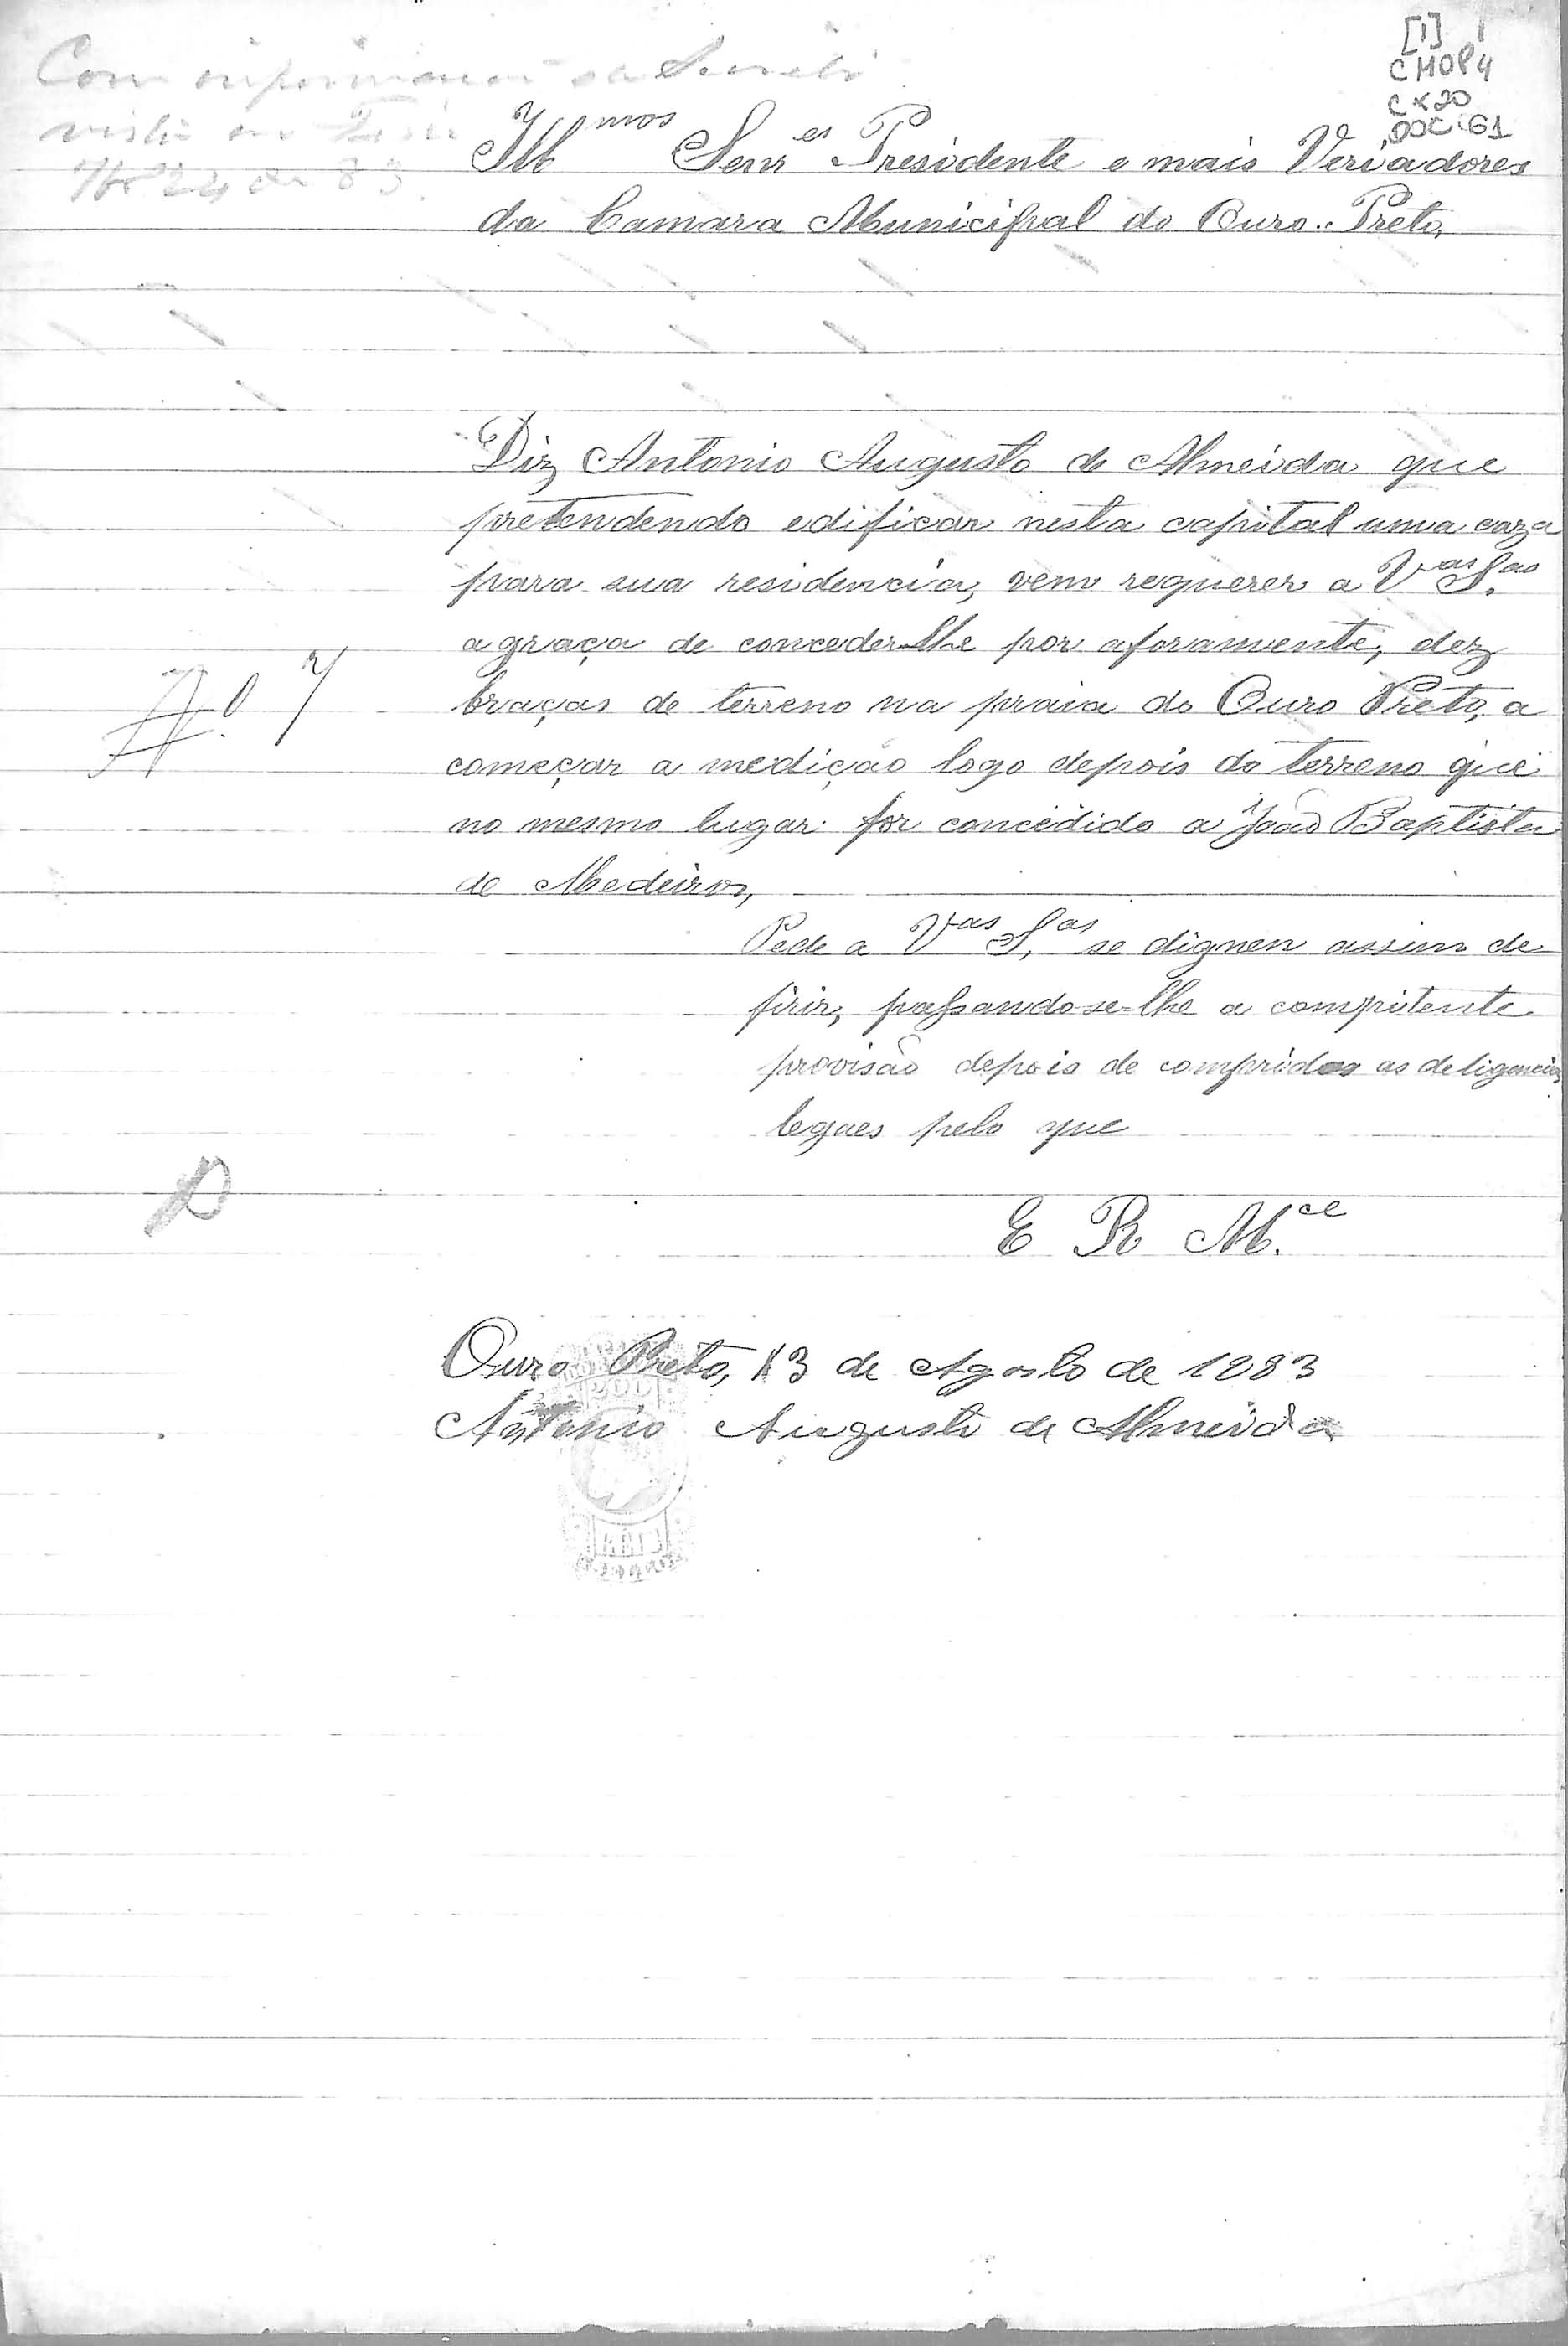 [1] 1
CMOP4
CX20
DOC.61
Com informação
Ill.mos Senr.es Presidente e mais Veriadores
da Camara Municipal do Ouro-Preto,
Diz Antonio Augusto de Almeida que
pretendendo edificar nesta capital uma caza
para sua residencia, vem requerer a V.as S.as
a graça de conceder-lhe por aforamente, dez
braças de terreno na praia do Ouro Preto, a
começar a medição logo depois do terreno que
no mesmo lugar for concedido a João Baptista
de Medeiros,
N.º 7
Pede a V.as S.as se dignen assim de
firir, passando-se-lhe a competente
provisão depois de compridas as deligencias
legaes pelo que
E R M.ce
Ouro Preto, 13 de Agosto de 1883
Antonio Augusto de Almeida
RÉIS